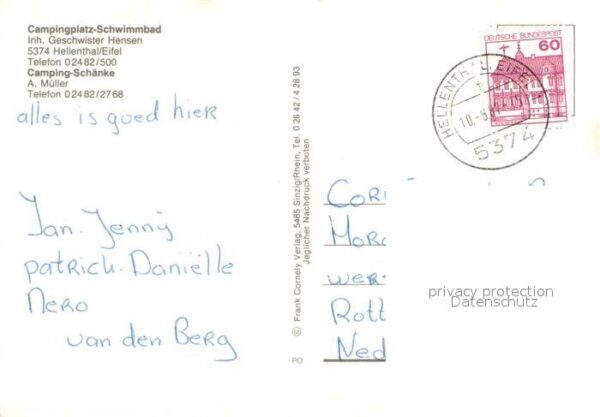 Campingplatz-Schwimmbad
Inh. Geschwister Hensen
5374 Hellenthal/Eifel
Telefon 02482/500
Camping-Schänke
A. Müller
Telefon 02482/2768
alles is goed hier
Jan. Jenny
Patrick. Daniëlle
Nero
van den Berg
© Frank Cornely Verlag, 5485 Sinzig/Rhein, Tel. 0 26 42 / 4 28 93
Jeglicher Nachdruck verboten
PO
DEUTSCHE BUNDESPOST
60
HELLENTHAL, EIFEL
5374
privacy protection
Datenschutz